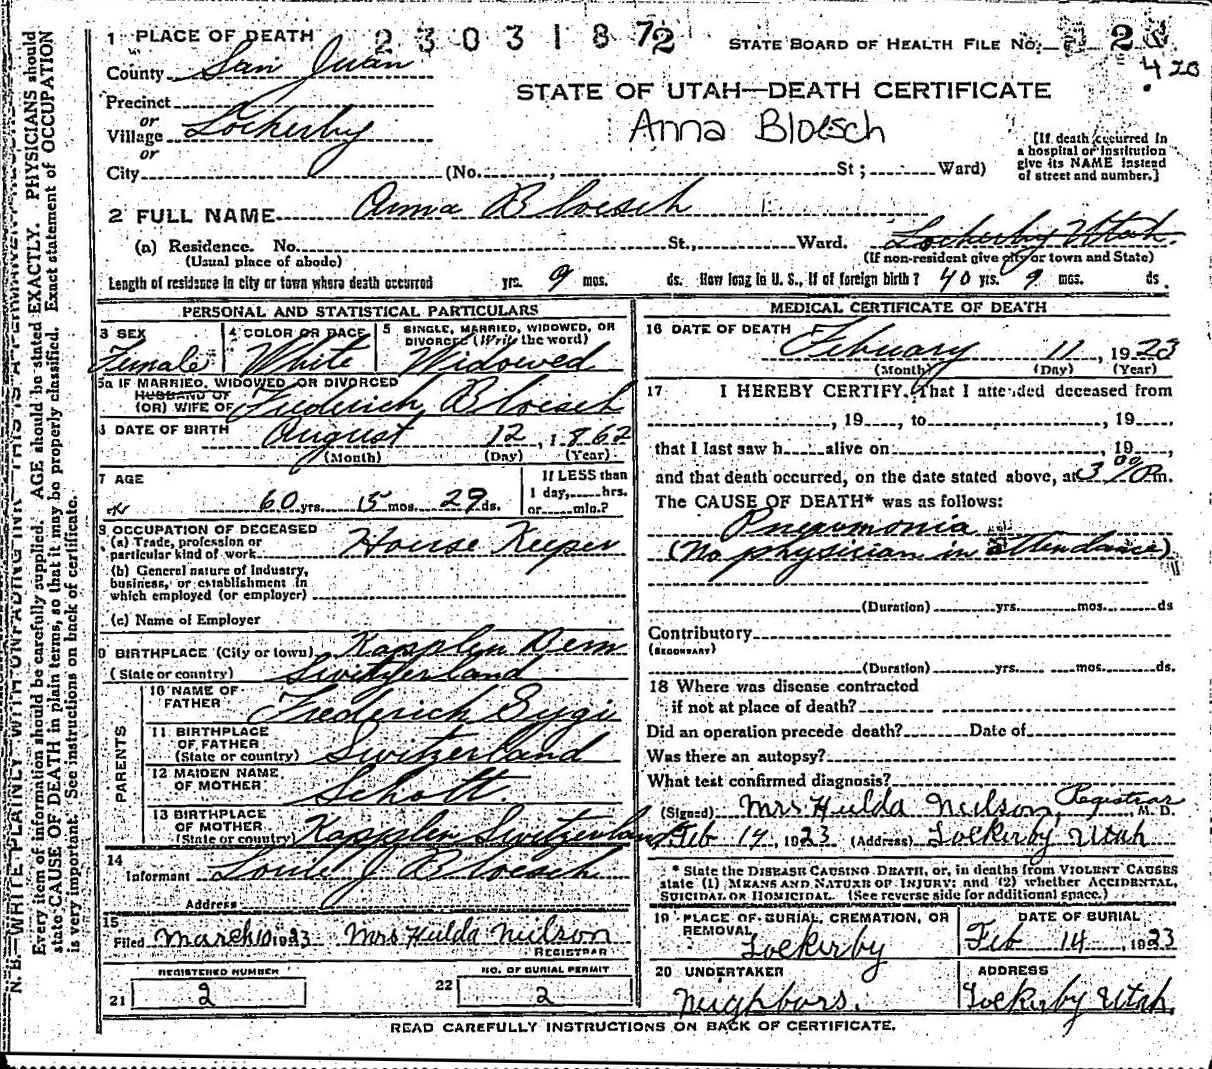 1 PLACE OF DEATH 2303187 2 STATE BOARD OF HEALTH FILE No. 2
County San Juan 420
STATE OF UTAH—DEATH CERTIFICATE
Precinct
or
Village Lockerby Anna Bloesch
or
City (No. , St ; Ward)
[If death occurred in
a hospital or institution
give its NAME instead
of street and number.]
2 FULL NAME Anna Bloesch
(a) Residence. No. St., Ward. Lockerby Utah.
(Usual place of abode) (If non-resident give city or town and State)
Length of residence in city or town where death occurred yrs. 9 mos. ds. How long in U. S., if of foreign birth ? 40 yrs. 9 mos. ds.
PERSONAL AND STATISTICAL PARTICULARS
3 SEX 4 COLOR OR RACE 5 SINGLE, MARRIED, WIDOWED, OR
DIVORCED (Write the word)
Female White Widowed
5a IF MARRIED, WIDOWED OR DIVORCED
HUSBAND OF
(OR) WIFE OF Frederich Bloesch
6 DATE OF BIRTH August 12, 1862
(Month) (Day) (Year)
7 AGE If LESS than
60 yrs. 5 mos. 29 ds. 1 day, hrs.
or min.?
8 OCCUPATION OF DECEASED
(a) Trade, profession or
particular kind of work House Keeper
(b) General nature of industry,
business, or establishment in
which employed (or employer)
(c) Name of Employer
9 BIRTHPLACE (City or town) Kapplen Bern
(State or country) Switzerland
PARENTS
10 NAME OF
FATHER Frederich Gygi
11 BIRTHPLACE
OF FATHER
(State or country) Switzerland
12 MAIDEN NAME
OF MOTHER Schott.
13 BIRTHPLACE
OF MOTHER
(State or country) Kapplen Switzerland
14
Informant Louie J Bloesch
Address
15
Filed March 10 1923 Mrs Hulda Nielson
REGISTRAR
REGISTERED NUMBER NO. OF BURIAL PERMIT
21 2 22 2
MEDICAL CERTIFICATE OF DEATH
16 DATE OF DEATH
February 11, 1923
(Month) (Day) (Year)
17 I HEREBY CERTIFY, That I attended deceased from
, 19 , to , 19 ,
that I last saw h alive on , 19 ,
and that death occurred, on the date stated above, at 3 00 P m.
The CAUSE OF DEATH* was as follows:
Pneumonia
(No physician in attendance)
(Duration) yrs. mos. ds
Contributory
(SECONDARY)
(Duration) yrs. mos. ds.
18 Where was disease contracted
if not at place of death?
Did an operation precede death? Date of
Was there an autopsy?
What test confirmed diagnosis?
(Signed) Mrs Hulda Nielson, Registrar, M. D.
Feb 14, 1923 (Address) Lockerby Utah
* State the DISEASE CAUSING DEATH, or, in deaths from VIOLENT CAUSES
state (1) MEANS AND NATURE OF INJURY; and (2) whether ACCIDENTAL,
SUICIDAL OR HOMICIDAL. (See reverse side for additional space.)
19 PLACE OF BURIAL, CREMATION, OR
REMOVAL DATE OF BURIAL
Lockerby Feb 14, 1923
20 UNDERTAKER ADDRESS
Neighbors. Lockerby Utah.
READ CAREFULLY INSTRUCTIONS ON BACK OF CERTIFICATE.
N. B.—WRITE PLAINLY WITH UNFADING INK—THIS IS A PERMANENT RECORD
Every item of information should be carefully supplied. AGE should be stated EXACTLY. PHYSICIANS should
state CAUSE OF DEATH in plain terms, so that it may be properly classified. Exact statement of OCCUPATION
is very important. See instructions on back of certificate.